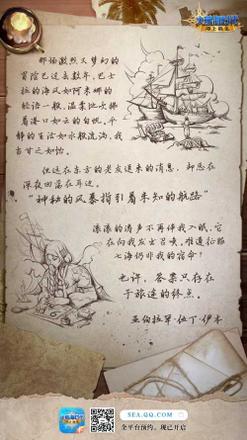 大航海时代
海上霸主
那场激烈又梦幻的
冒险已过去数年,巴士
拉的海风如阿米娜的
轻语一般,温柔地吹拂
着港口如云的白帆。平
静的生活如水般流淌,我
亦甘之如饴。
但这在东方的老友送来的消息,却总在
深夜回荡在耳边。
“神秘的风暴指引着未知的航路”
滚滚的涛声不再伴我入眠,它
在向我发出召唤,难道征服
七海仍非我的宿命?
也许,答案只存在
于旅途的终点。
亚伯拉罕·伍丁·伊本
SEA.QQ.COM
全平台预约,现已开启